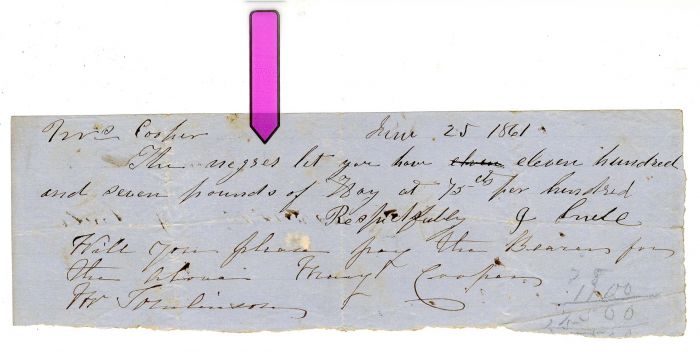 Mrs Cooper June 25 1861
The negres let you have eleven eleven hundred
and seven pounds of Hay at 75 cts per hundred
Respectfully J
Will you please pay the Bearer for
the above Mary Cooper
Mr Tomlinson
1100